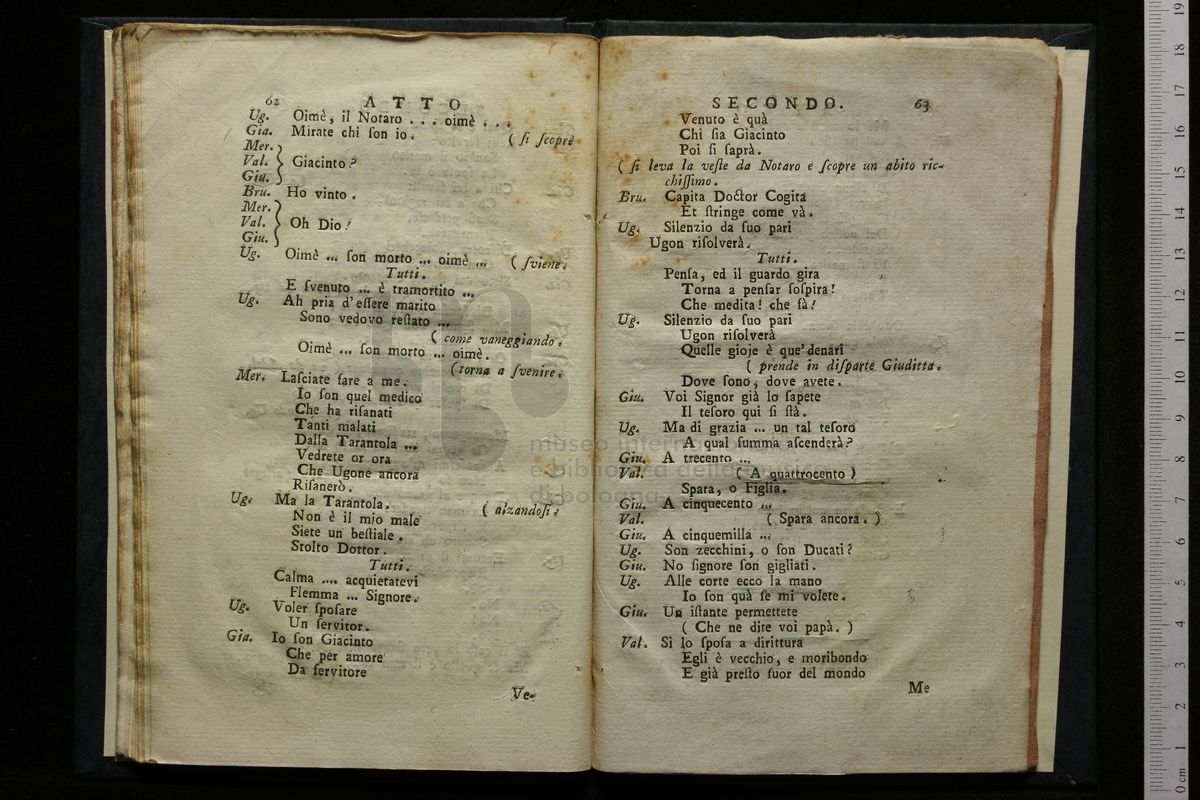 62 ATTO
Ug. Oimè, il Notaro . . . oimè . . .
Gia. Mirate chi ſon io. ( ſi ſcopre
Mer.
Val. } Giacinto?
Giu.
Bru. Ho vinto.
Mer.
Val. } Oh Dio!
Giu.
Ug. Oimè ... ſon morto ... oimè ... ( ſviene.
Tutti.
E ſvenuto ... è tramortito ...
Ug. Ah pria d'eſſere marito
Sono vedovo reſtato ...
( come vaneggiando.
Oimè ... ſon morto ... oimè.
(torna a ſvenire.
Mer. Laſciate fare a me.
Io ſon quel medico
Che ha riſanati
Tanti malati
Dalla Tarantola ...
Vedrete or ora
Che Ugone ancora
Riſanerò.
Ug. Ma la Tarantola. ( alzandoſi.
Non è il mio male
Siete un beſtiale.
Stolto Dottor.
Tutti.
Calma .... acquietatevi
Flemma ... Signore.
Ug. Voler ſpoſare
Un ſervitor.
Gia. Io ſon Giacinto
Che per amore
Da ſervitore
Ve-
SECONDO. 63
Venuto è quà
Chi ſia Giacinto
Poi ſi ſaprà.
( ſi leva la veſte da Notaro e ſcopre un abito ric-
chiſſimo.
Bru. Capita Doctor Cogita
Et ſtringe come và.
Ug. Silenzio da ſuo pari
Ugon riſolverà.
Tutti.
Penſa, ed il guardo gira
Torna a penſar ſoſpira!
Che medita! che fà!
Ug. Silenzio da ſuo pari
Ugon riſolverà
Quelle gioje è que' denari
( prende in diſparte Giuditta.
Dove ſono, dove avete.
Giu. Voi Signor già lo ſapete
Il teſoro qui ſi ſtà.
Ug. Ma di grazia ... un tal teſoro
A qual ſumma aſcenderà?
Giu. A trecento ...
Val. ( A quattrocento )
Spara, o Figlia.
Giu. A cinquecento ...
Val. ( Spara ancora. )
Giu. A cinquemilla ...
Ug. Son zecchini, o ſon Ducati?
Giu. No ſignore ſon gigliati.
Ug. Alle corte ecco la mano
Io ſon quà ſe mi volete.
Giu. Un iſtante permettete
( Che ne dite voi papà. )
Val. Si lo ſpoſa a dirittura
Egli è vecchio, e moribondo
E già preſto fuor del mondo
Me
museo internazionale
e biblioteca della musica
di bologna
0 cm 1 2 3 4 5 6 7 8 9 10 11 12 13 14 15 16 17 18 19